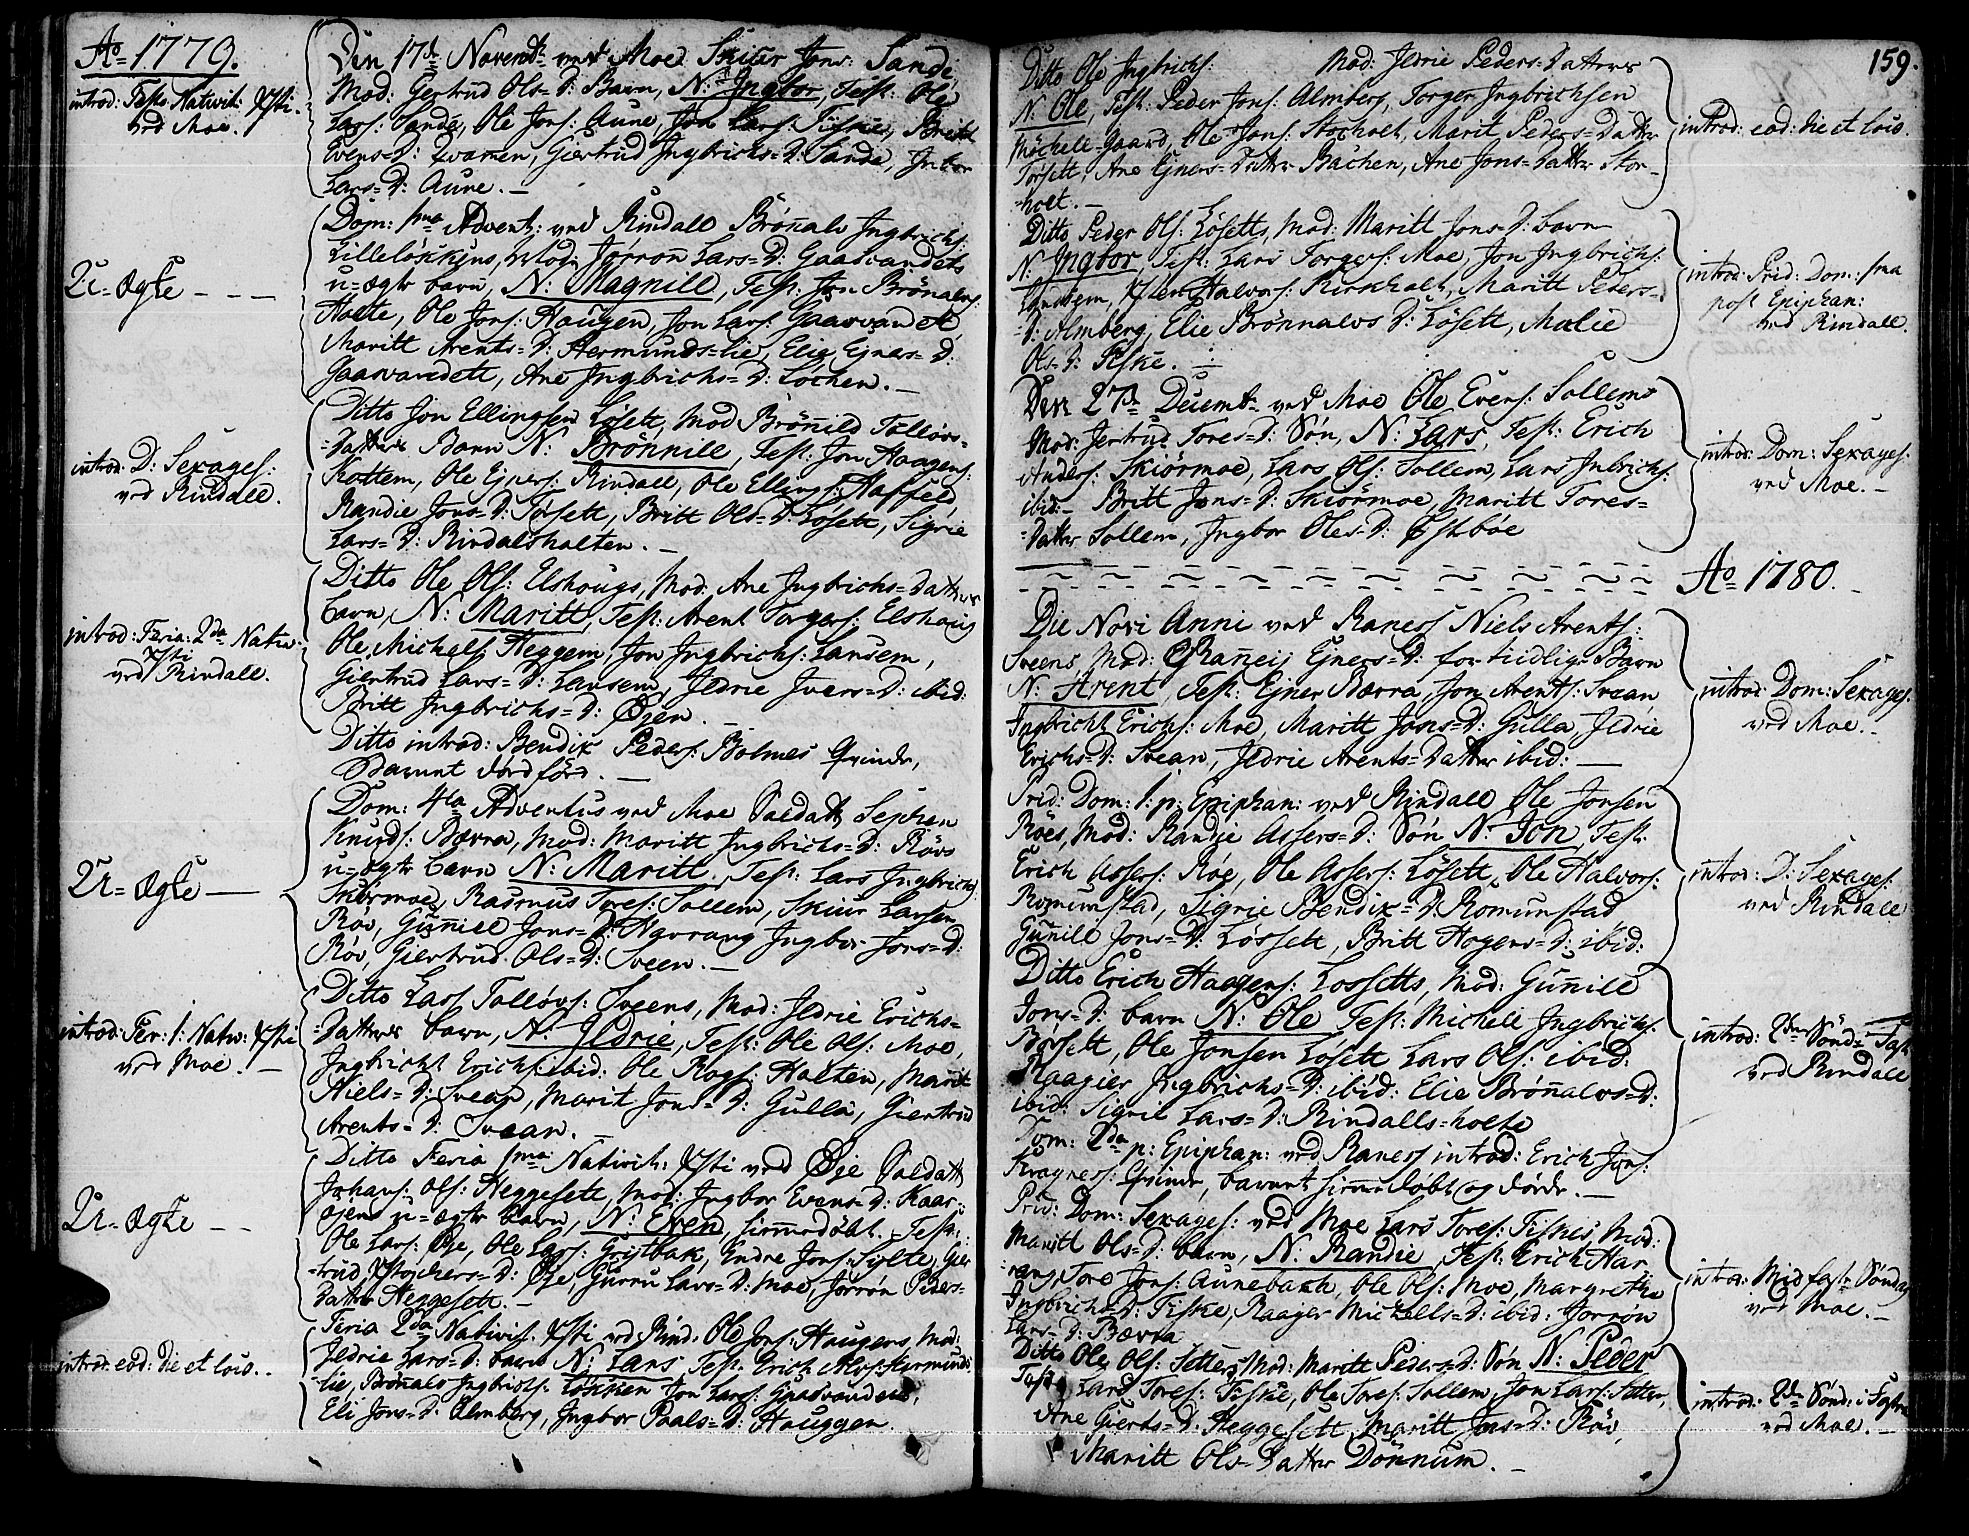 Ao 1779.
introd: Festo Nativit: Xsti
ved Moe.
Den 17de Novembr ved Moe Skiür Jons: Sande
Mod: Gertrud Ols=D: Barn, N: Ingbor, Test: Ole
Lars: Sande, Ole Jons: Aune, Jon Lars: Tiske, Britt
Evens=D: Qvamen, Giertrud Ingbrichs=D: Sande, Ingbor
Lars=D: Aune. —
U=Ægte - - —
Dom: 1ma Advent: ved Rindall Brönals Ingbrichs:
Lilleløkkens, Mod: Jørron Lars=D: Gaasvandets
u=ægte barn, N: Magnill, Test: Jon Brönals:
Holte, Ole Jons: Haugen, Jon Lars: Gaasvandet,
Maritt Arents=D: Hermunds=lie, Elie Ejners=D:
Gaasvandett, Ane Ingbrichs=D: Løchen. —
introd: D: Sexages:
ved Rindall.
Ditto Jon Ellingsen Løsett, Mod Brönild Tolløvs=
=Datters Barn N: Brönnille, Test: Jon Haagens:
Rottem, Ole Ejners: Rindall, Ole Ellings: Haffeld,
Randie Jons=D: Løsett, Britt Ols=D: Løsett, Sigrie
Lars=D: Rindalsholten. —
introd: Feria: 2da Nativ:
Xsti
ved Rindall.
Ditto Ole Ols: Elshougs, Mod: Ane Ingbrichs=Datters
barn, N: Maritt, Test: Arent Torgers: Elshoug
Ole Michels: Heggem, Jon Ingbrichs: Lansem,
Giertrud Lars=D: Lansem, Jldrie Jvers=D: ibid:
Britt Ingbrichs=D: Øjen. —
Ditto introd: Bendix Peders: Bolmes Qvinde,
Barnet dødfød. —
U=Ægte —
Dom: 4ta Adventus ved Moe Soldatt Sephen
Knuds: Bævra, Mod: Maritt Ingbrichs=D: Røvs
u=ægte barn N: Maritt, Test: Lars Ingbrichs:
Skiørmoe, Rasmus Tores: Sollem, Skiur Larsen
Røv, Gunild Jons=D: Harrang Ingbor Jons=D:
Røv, Giertrud Ols=D: Sveen. —
introd: Fer: 1: Nativ: Xsti
ved Moe. —
Ditto Lars Tolløvs: Sveens, Mod: Jldrie Erichs=
=Datters barn, N: Jldrie, Test: Ole Ols: Moe,
Ingbricht Erichs: ibid: Ole Roals: Holten, Marit
Niels=D: Svean, Marit Jons=D: Gulla, Giertrud
Arents=D: Svean.
U=Ægte - —
Ditto Feria 1ma: Nativit: Xsti ved Øje Soldatt
Johans: Ols: Heggesett, Mod: Ingbor Evens=D: Kaar=
øjens u=ægte barn, N: Even, hiemedøbt. Test:
Ole Lars: Øje, Ole Lars: Gristbak, Endre Jons: Sylte, Gier
=trud Xstophers=D: Øje, Gurru Lars=D: Moe, Jorrøn Peders=
Datter Heggesett. —
introd: eod: die et loco..
Feria 2da Nativit. Xsti ved Rind: Ole Jons: Haugens, Mod:
Jldrie Lars=D: barn N: Lars Test: Erich Alfs: Hermunds
lie, Brönals Ingbrichs: Løkken Jon Lars: Gaasvandett,
Eli Jons=D: Almberg, Ingbor Paals=D: Hauggen.
159.
Ditto Ole Ingbrichs: Mod: Jldrie Peders=Datters
N: Ole, Test: Peder Jons: Almberg, Torger Ingbrichsen
Möchell=gaard, Ole Jons: Storholt, Marit Peders=Datter
Torsett, Ane Ejners=Datter Bachen, Ane Jons=Datter Stor=
=holt. —
introd: eod: die et loco.
Ditto Peder Ols: Løsetts, Mod: Maritt Jons=D: barn
N: Ingbor, Test: Lars Torgers: Moe, Jon Ingbrichs:
Landsem, Xsten Halvors: Kirkholt, Maritt Peders=
=D: Almberg, Elie Brönnalvs D: Løsett, Malie
Ols=D: Tiske. —
introd: Prid: Dom: 1ma
post Epiphan:
ved Rindall.
Den 27de Decembr ved Moe Ole Evens: Sollems
Mod: Jertrud Tores=D: Søn, N: Lars, Test: Erich
Anders: Skiørmoe, Lars Ols: Sollem, Lars Inbrichs:
ibid= Britt Jons=D: Skiörmoe, Maritt Tores=
=Datter Sollem, Ingbor Oles=D: Østbøe
introd: Dom: Sexages:
ved Moe. —
Ao 1780.
Die Novi Anni ved Raness Niels Arents:
Sveens, Mod: Ranneij Ejners=D: for tiidlig Barn
N: Arent, Test: Ejner Bævra, Jon Arents: Svean,
Ingbricht Erichs: Moe, Maritt Jons=D: Gulla, Jldrie
Erichs=D: Svean, Jldrie Arents=Datter ibid: —
introd: Dom: Sexages:
ved Moe. —
Prid: Dom: 1: p: Epiphan: ved Rindall Ole Jonsen
Røes, Mod: Randie Assers=D: Søn N: Jon, Test:
Erich Assers: Røe, Ole Assers: Løsett, Ole Halvors:
Romunstad, Sigrie Bendix=D: Romunstad
Gunild Jons=D: Løssett, Britt Hogens=D: ibid:
introd: D: Sexages:
ved Rindall
Ditto Erich Haagens: Lossetts, Mod: Gunild
Jons=D: barn N: Ole Test: Michell Ingbrichs:
Børsett, Ole Jonsen Løsett Lars Ols: ibid:
Raagier Ingbrichs=D: ibid: Elie Brönalvs=D:
ibid: Sigrie Lars=D: Rindalls=holte
introd: 2den Sönd= Fast
ved Rindall
Dom: 2da p: Epiphan: ved Raness introd: Erich Jons:
Kragness: Qvinde, barnet hiemedøbt og døde. —
Prid: Dom: Sexages: ved Moe Lars Tores: Tiskes, Mod:
Maritt Ols=D: barn, N: Randie, Test: Erich Har
rang, Tore Jons: Aunebach, Ole Ols: Moe, Margrethe
Ingbrichs=D: Tiske, Raager Michells=D: ibid: Jorrøn
Lars=D: Bævra
introd: Midfaste Söndag
ved Moe. —
Ditto Ole Ols: Setters, Mod: Maritt Peders=D: Søn N: Peder
Test: Lars Tores: Tiske, Ole Tores: Sollem, Jon Lars: Setter,
Ane Gierts=D: Heggesett, Maritt Jons=D: Røv,
Maritt Ols=Datter Dönnum. —
introd: 2de Sönd: i Faste
ved Moe. —